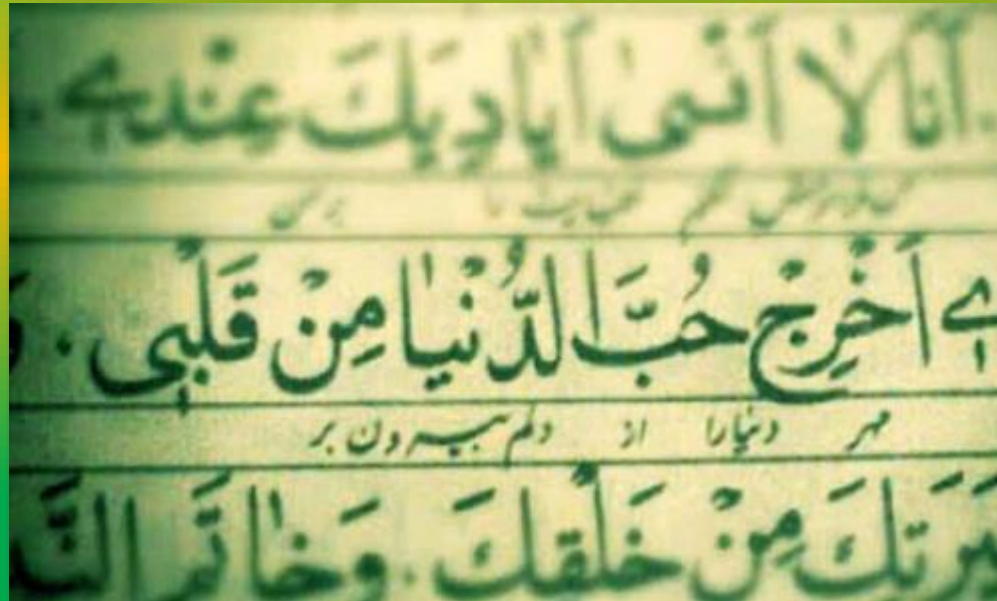 أَنَا لَا أَنْسىٰ أَيَادِيَكَ عِنْدے
بر من
ے أَخْرِجْ حُبَّ الدُّنْيٰا مِنْ قَلْبِی .
مهر دنیارا از دلم بیرون بر
مِنْ خَلْقِكَ . وَخٰاتَمِ